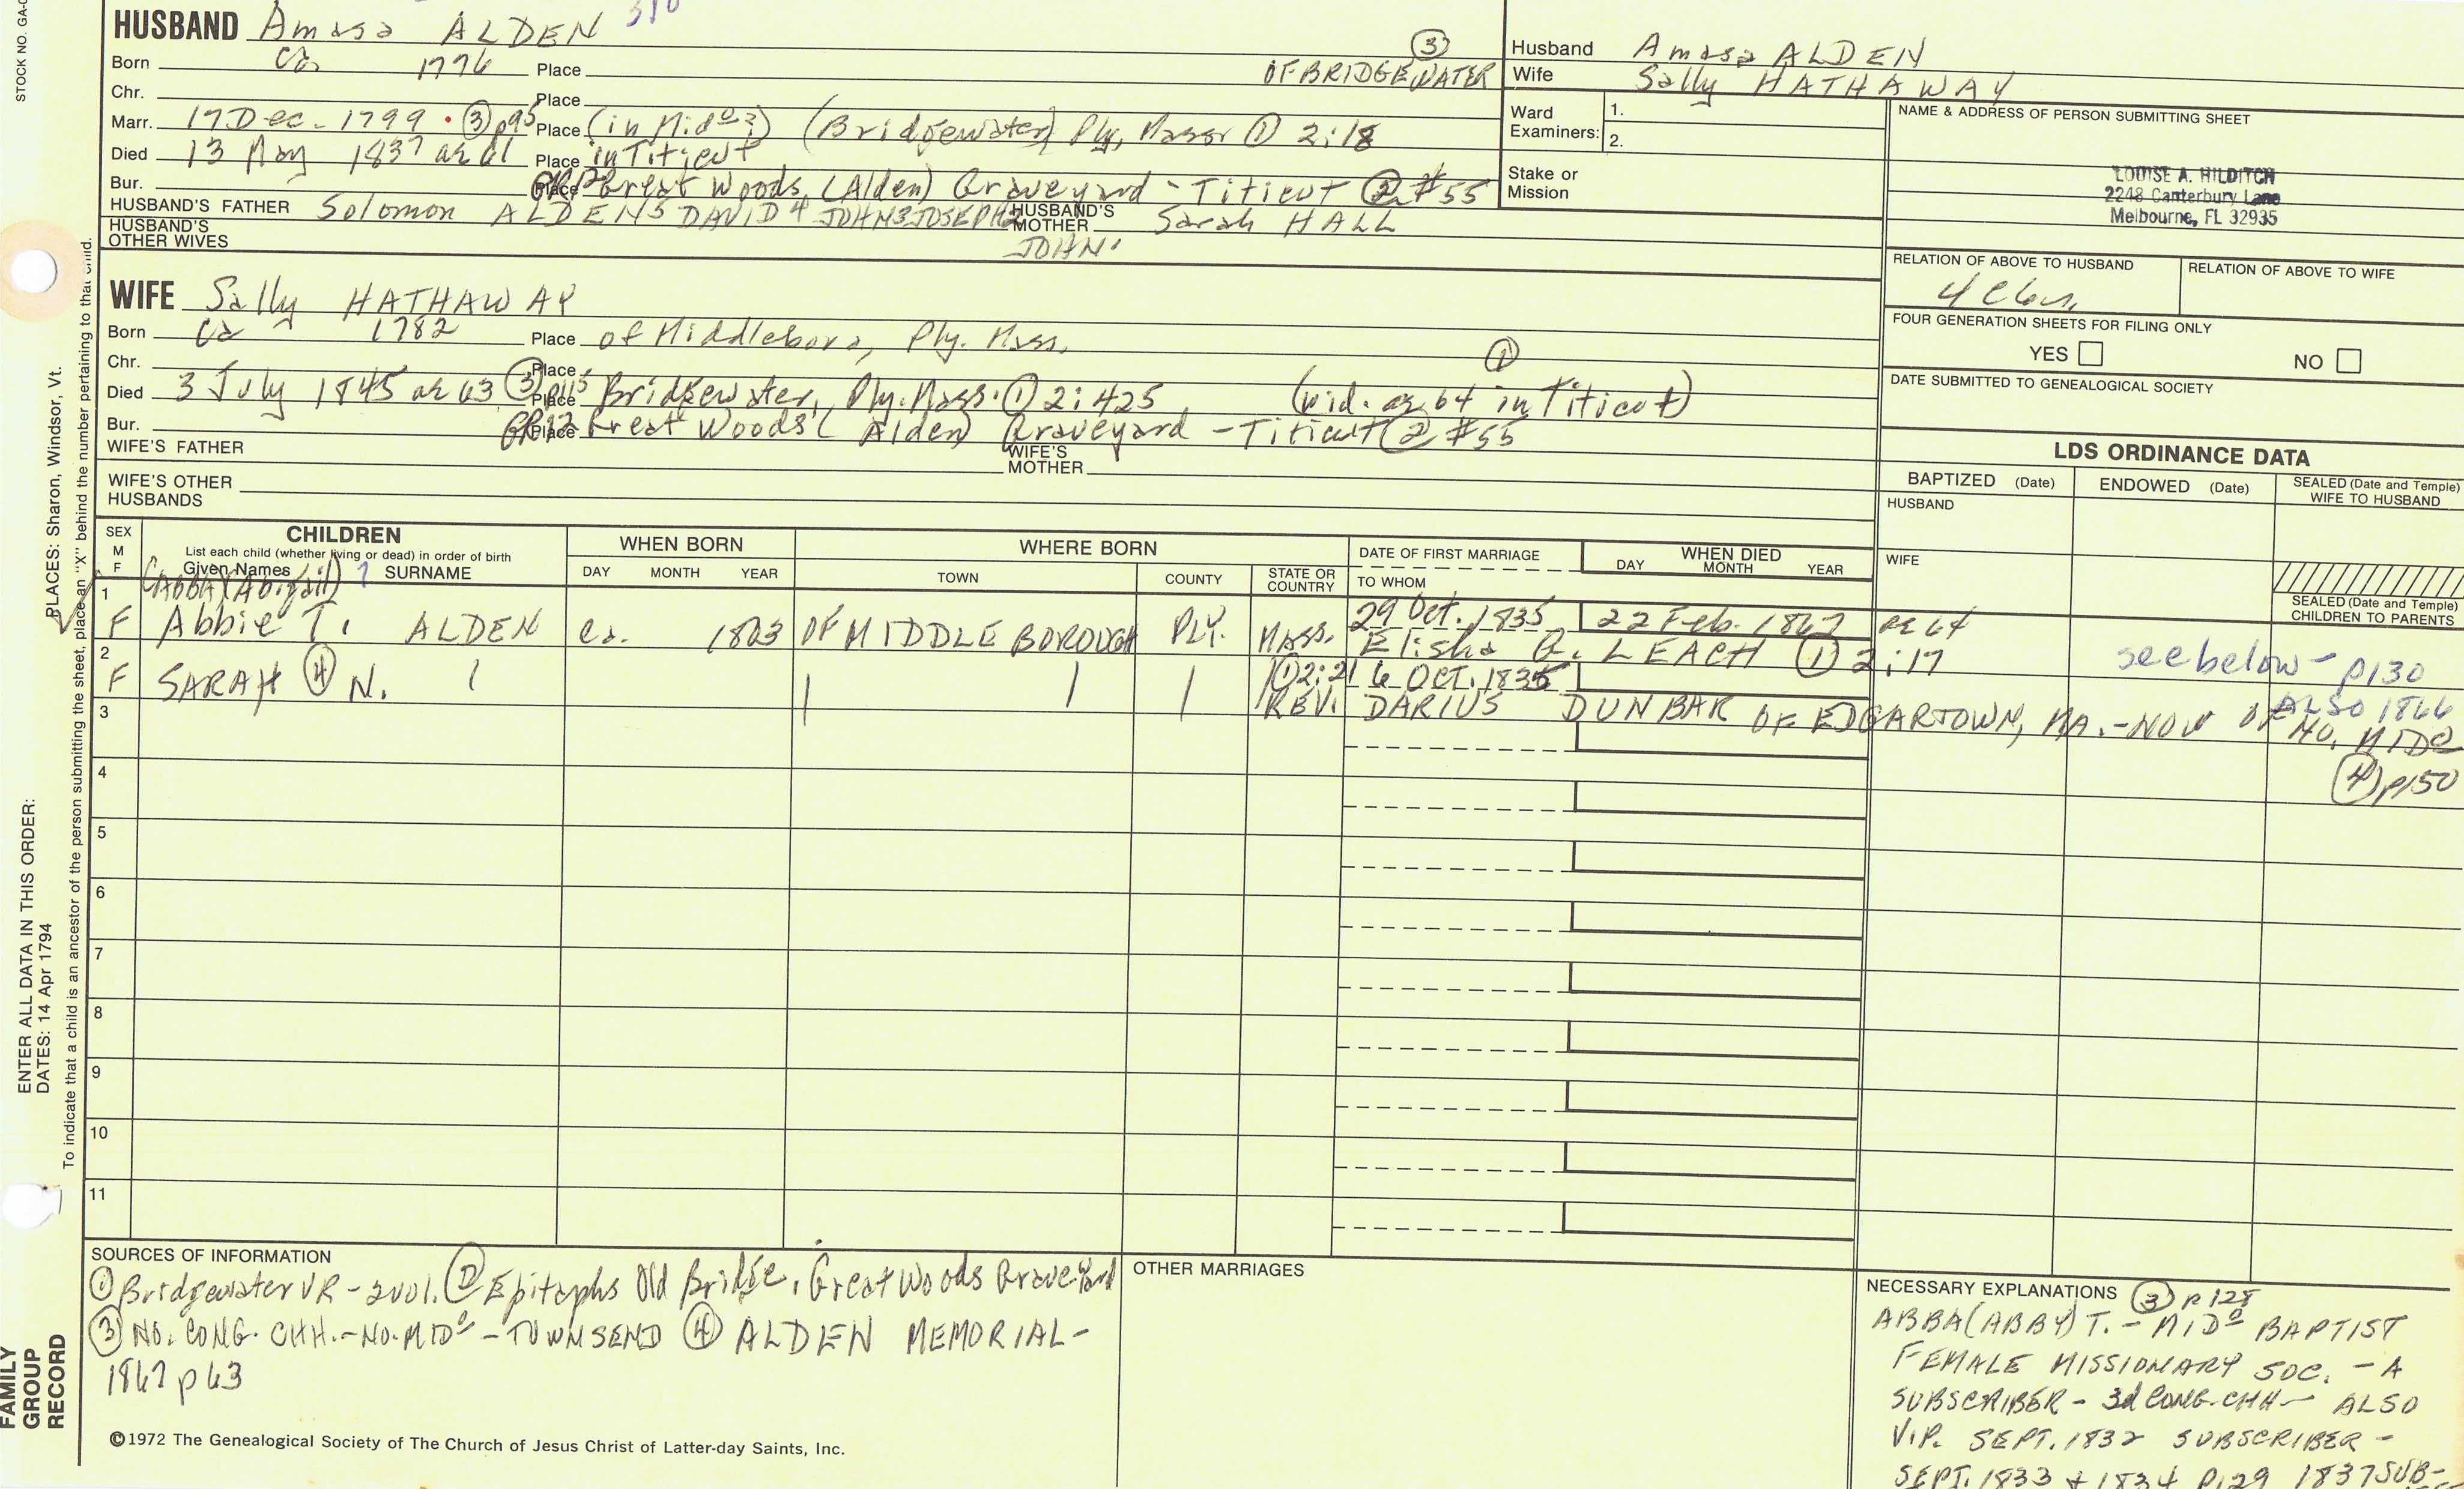 STOCK NO. GA-
HUSBAND Amasa ALDEN
Born ca 1776 Place OF BRIDGEWATER ③
Chr. Place
Marr. 17 Dec. 1799 · ③ p95 Place (in Mido?) (Bridgewater) Ply, Mass. ① 2:18
Died 13 May 1837 ae 61 Place in Titicut
Bur. Place GR12 Great Woods (Alden) Graveyard - Titicut ② #55
HUSBAND'S FATHER Solomon ALDEN5 DAVID4 JOHN3 JOSEPH2 JOHN1 HUSBAND'S MOTHER Sarah HALL
HUSBAND'S OTHER WIVES
Husband Amasa ALDEN
Wife Sally HATHAWAY
Ward Examiners: 1.
2.
Stake or Mission
NAME & ADDRESS OF PERSON SUBMITTING SHEET
LOUISE A. HILDITCH
2248 Canterbury Lane
Melbourne, FL 32935
RELATION OF ABOVE TO HUSBAND
RELATION OF ABOVE TO WIFE
4
FOUR GENERATION SHEETS FOR FILING ONLY
YES NO
DATE SUBMITTED TO GENEALOGICAL SOCIETY
WIFE Sally HATHAWAY
Born ca 1782 Place of Middleboro, Ply. Mass.
Chr. Place ①
Died 3 July 1845 ae 63 ③ p115 Place Bridgewater, Ply. Mass. ① 2:425 (wid. ae 64 in Titicut)
Bur. Place GR12 Great Woods (Alden) Graveyard - Titicut ② #55
WIFE'S FATHER WIFE'S MOTHER
WIFE'S OTHER HUSBANDS
LDS ORDINANCE DATA
BAPTIZED (Date) ENDOWED (Date) SEALED (Date and Temple) WIFE TO HUSBAND
HUSBAND
WIFE
SEALED (Date and Temple) CHILDREN TO PARENTS
SEX M F CHILDREN List each child (whether living or dead) in order of birth Given Names SURNAME
WHEN BORN DAY MONTH YEAR
WHERE BORN TOWN COUNTY STATE OR COUNTRY
DATE OF FIRST MARRIAGE TO WHOM
WHEN DIED DAY MONTH YEAR
(ABBA) (Abigail) ?
1 F Abbie T. ALDEN ca. 1803 OF MIDDLEBOROUGH PLY. MASS. 29 Oct. 1835 22 Feb. 1867 ae 64
Elisha G. LEACH ① 2:17
see below - p130
ALSO 1866
2 F SARAH ④ N. ① 2:21 6 OCT. 1835
REV. DARIUS DUNBAR OF EDGARTOWN, MA. - NOW OF NO. MIDo
④ p150
3
4
5
6
7
8
9
10
11
PLACES: Sharon, Windsor, Vt.
ENTER ALL DATA IN THIS ORDER:
DATES: 14 Apr 1794
To indicate that a child is an ancestor of the person submitting the sheet, place an "X" behind the number pertaining to that child.
FAMILY GROUP RECORD
SOURCES OF INFORMATION
① Bridgewater VR - 2 vol. ② Epitaphs Old Bridge, Great Woods Graveyard
③ NO. CONG. CHH. - NO. MIDo - TOWNSEND ④ ALDEN MEMORIAL -
1867 p 63
©1972 The Genealogical Society of The Church of Jesus Christ of Latter-day Saints, Inc.
OTHER MARRIAGES
NECESSARY EXPLANATIONS ③ p 128
ABBA (ABBY) T. - MIDo BAPTIST
FEMALE MISSIONARY SOC. - A
SUBSCRIBER - 3d CONG. CHH - ALSO
V.P. SEPT. 1832 SUBSCRIBER -
SEPT. 1833 & 1834 p129 1837 SUB-